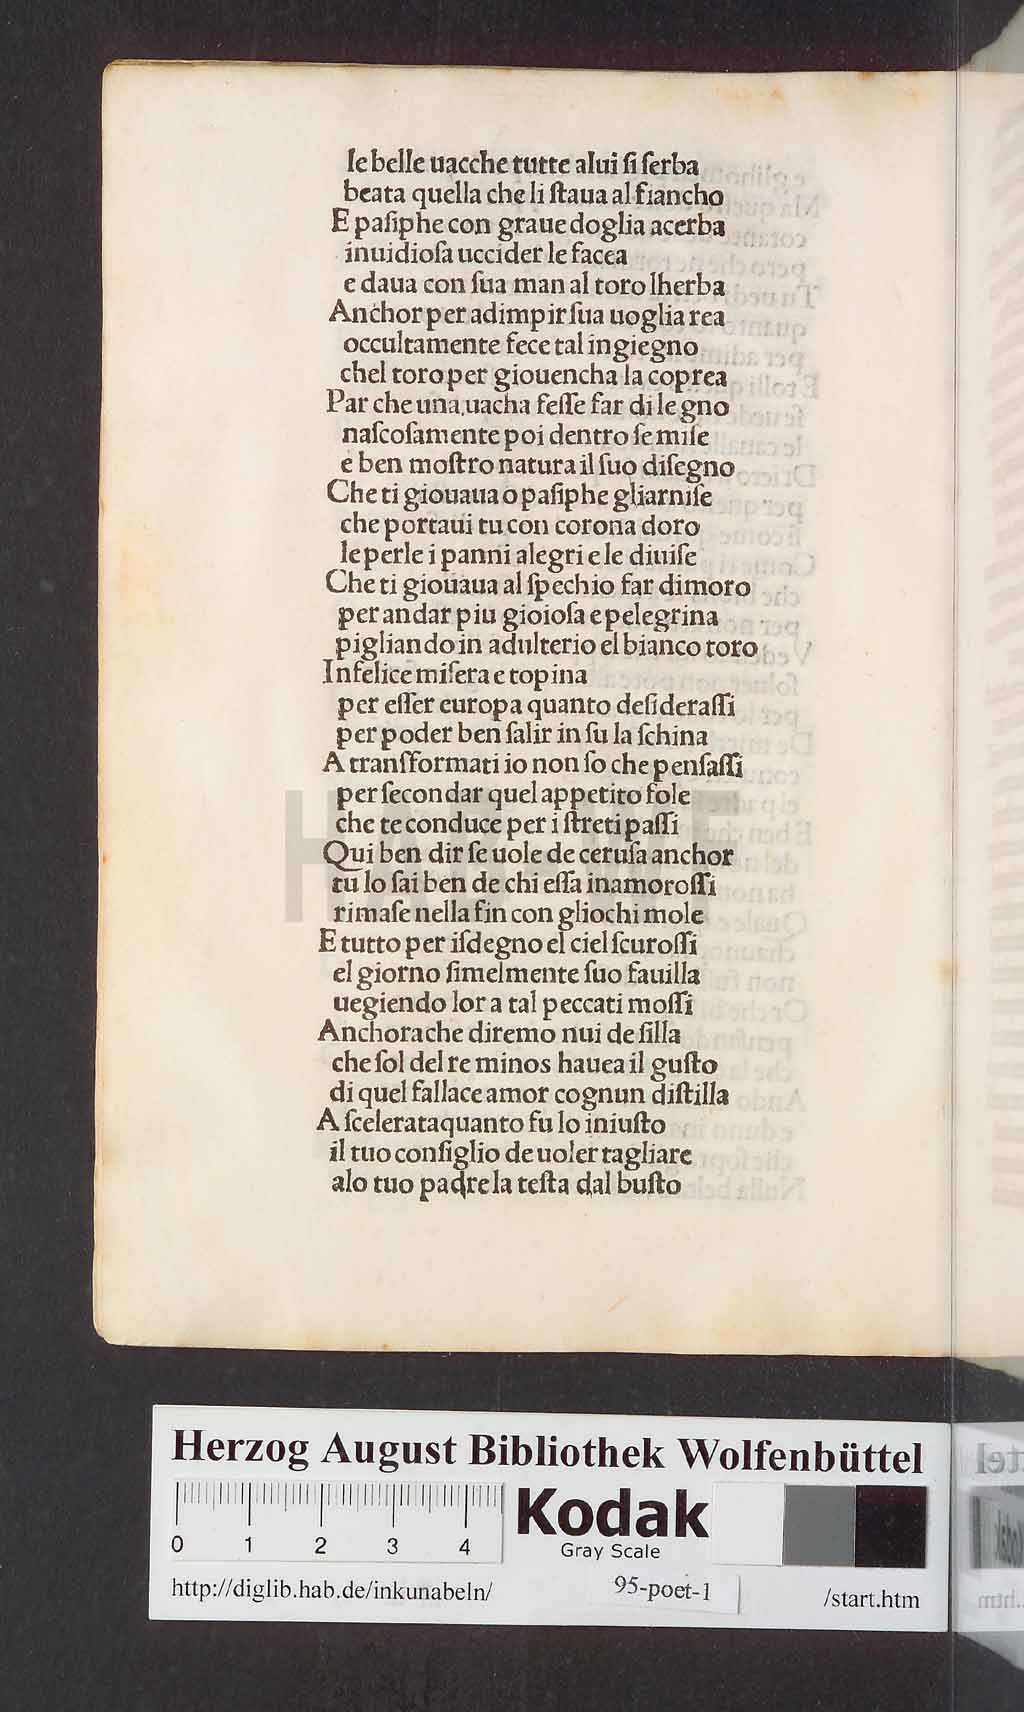 le belle uacche tutte alui ſi ſerba
beata quella che li ſtaua al fiancho
E paſiphe con graue doglia acerba
inuidioſa uccider le facea
e daua con ſua man al toro lherba
Anchor per adimpir ſua uoglia rea
occultamente fece tal ingiegno
chel toro per giouencha la coprea
Par che una uacha feſſe far di legno
naſcoſamente poi dentro ſe miſe
e ben moſtro natura il ſuo diſegno
Che ti giouaua o paſiphe gliarniſe
che portaui tu con corona doro
le perle i panni alegri e le diuiſe
Che ti giouaua al ſpechio far dimoro
per andar piu gioioſa e pelegrina
pigliando in adulterio el bianco toro
Infelice miſera e topina
per eſſer europa quanto deſideraſſi
per poder ben ſalir in ſu la ſchina
A tranſformati io non ſo che penſaſſi
per ſecondar quel appetito fole
che te conduce per i ſtreti paſſi
Qui ben dir ſe uole de ceruſa anchor
tu lo ſai ben de chi eſſa inamoroſſi
rimaſe nella fin con gliochi mole
E tutto per iſdegno el ciel ſcuroſſi
el giorno ſimelmente ſuo fauilla
uegiendo lor a tal peccati moſſi
Anchora che diremo nui de ſilla
che ſol del re minos hauea il guſto
di quel fallace amor cognun diſtilla
A ſcelerataquanto fu lo iniuſto
il tuo conſiglio de uoler tagliare
alo tuo padre la teſta dal buſto
HAB WF
Herzog August Bibliothek Wolfenbüttel
0 1 2 3 4
Kodak
Gray Scale
http://diglib.hab.de/inkunabeln/ 95-poet-1 /start.htm